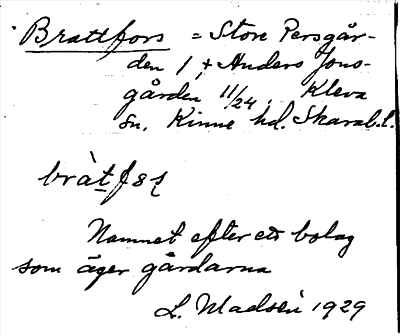 Brattfors = Store Persgår-
den 1, + Anders Jons-
gården 11/24, Kleva
sn. Kinne hd. Skarab. l.
bràt fs
Namnet efter ett bolag
som äger gårdarna
L. Madsén 1929